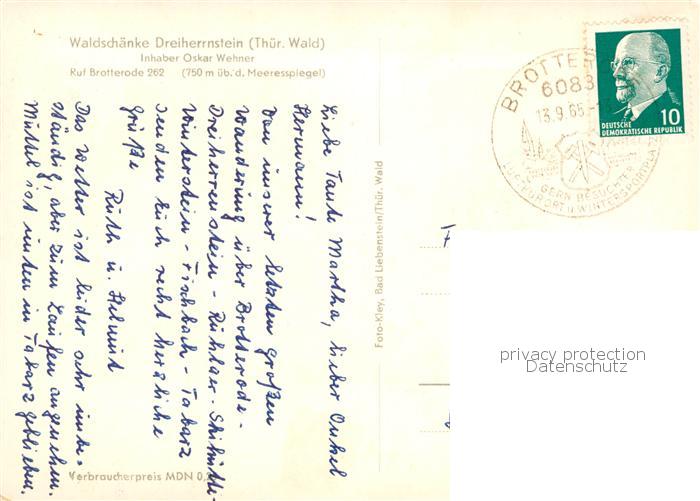 Waldschänke Dreiherrnstein (Thür. Wald)
Inhaber Oskar Wehner
Ruf Brotterode 262 (750 m üb. d. Meeresspiegel)
Liebe Tante Martha, lieber Onkel
Hermann!
Von unserer letzten großen
Wanderung über Brotterode-
Dreiherrenstein - Ruhlaer-Skihütte-
Winterstein - Fischbach - Tabarz
senden Euch recht herzliche
Grüße
Ruth u. Helmut
Das Wetter ist leider sehr unbe-
ständig, aber zum Laufen angenehm.
Muttel ist unten in Tabarz geblieben.
Verbraucherpreis MDN 0,2
Foto-Kley, Bad Liebenstein/Thür. Wald
BROTTE
6083
13.9.65
GERN BESUCHTER
LUFTKURORT U. WINTERSPORTPLATZ
10
DEUTSCHE
DEMOKRATISCHE REPUBLIK
privacy protection
Datenschutz